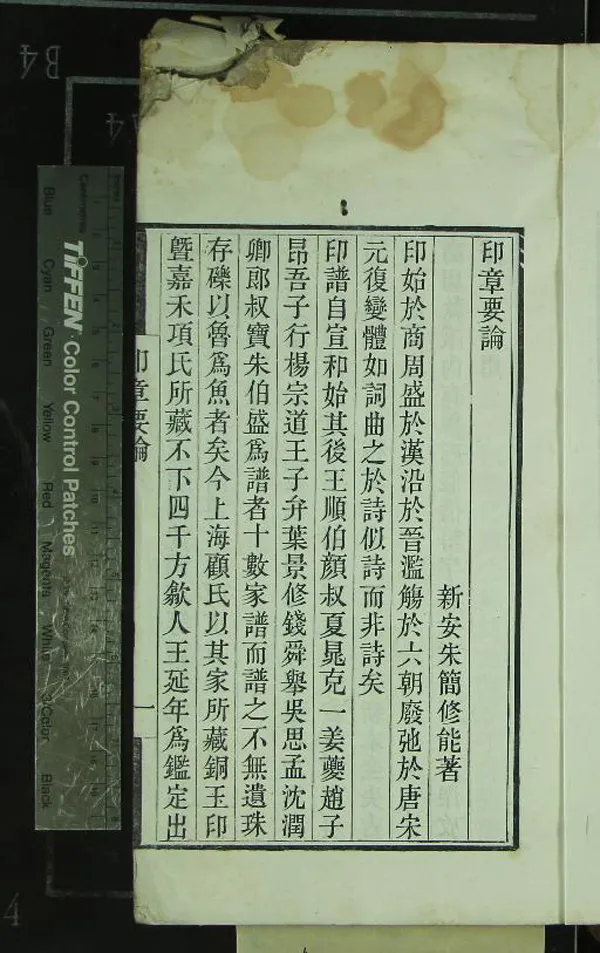 印章要論
新安朱簡修能著
印始於商周盛於漢沿於晉濫觴於六朝廢弛於唐宋
元復變體如詞曲之於詩似詩而非詩矣
印譜自宣和始其後王順伯顏叔夏晁克一姜夔趙子
昂吾子行楊宗道王子弁葉景修錢舜舉吳思孟沈潤
卿郎叔寶朱伯盛爲譜者十數家譜而譜之不無遺珠
存礫以魯爲魚者矣今上海顧氏以其家所藏銅玉印
曁嘉禾項氏所藏不下四千方歙人王延年爲鑑定出
印章要論
一
TIFFEN Color Control Patches
Centimetres
Blue
Cyan
Green
Yellow
Red
Magenta
White
3/Color
Black
B4
A4
4